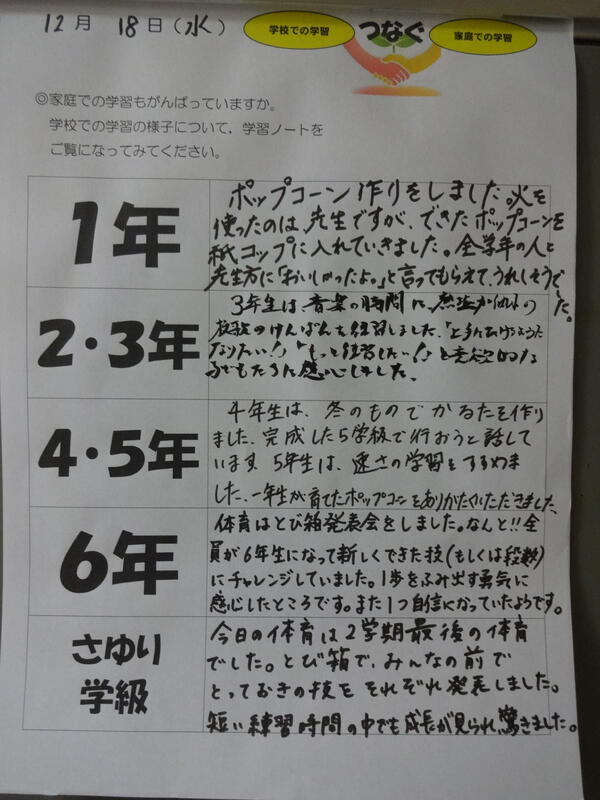 12月 18日(水)
学校での学習 つなぐ 家庭での学習
◎家庭での学習もがんばっていますか。
学校での学習の様子について、学習ノートを
ご覧になってみてください。
1年
ポップコーン作りをしました。火を
使ったのは、先生ですが、できたポップコーンを
紙コップに入れていきました。全学年の人と
先生方に「おいしかったよ。」と言ってもらえて、うれしそうでした。
2・3年
3年生は、音楽の時間に、
校歌のけんばんを練習しました。「上手に
なりたい!」「もっと練習したい!」と意欲的な
子どもたちに感心しました。
4・5年
4年生は、冬のものでかるたを作り
ました。完成したら学級で行おうと話して
います。5年生は、速さの学習をすすめま
した。一年生が育てたポップコーンをありがたくいただきました。
6年
体育はとび箱発表会をしました。なんと!!全
員が6年生になって新しくできた技(もしくは段数)
にチャレンジしていました。1歩をふみ出す勇気に
感心したところです。また1つ自信になっていたようです。
さゆり
学級
今日の体育は2学期最後の体育
でした。とび箱で、みんなの前で
とっておきの技をそれぞれ発表しました。
短い練習時間の中でも成長が見られ、驚きました。